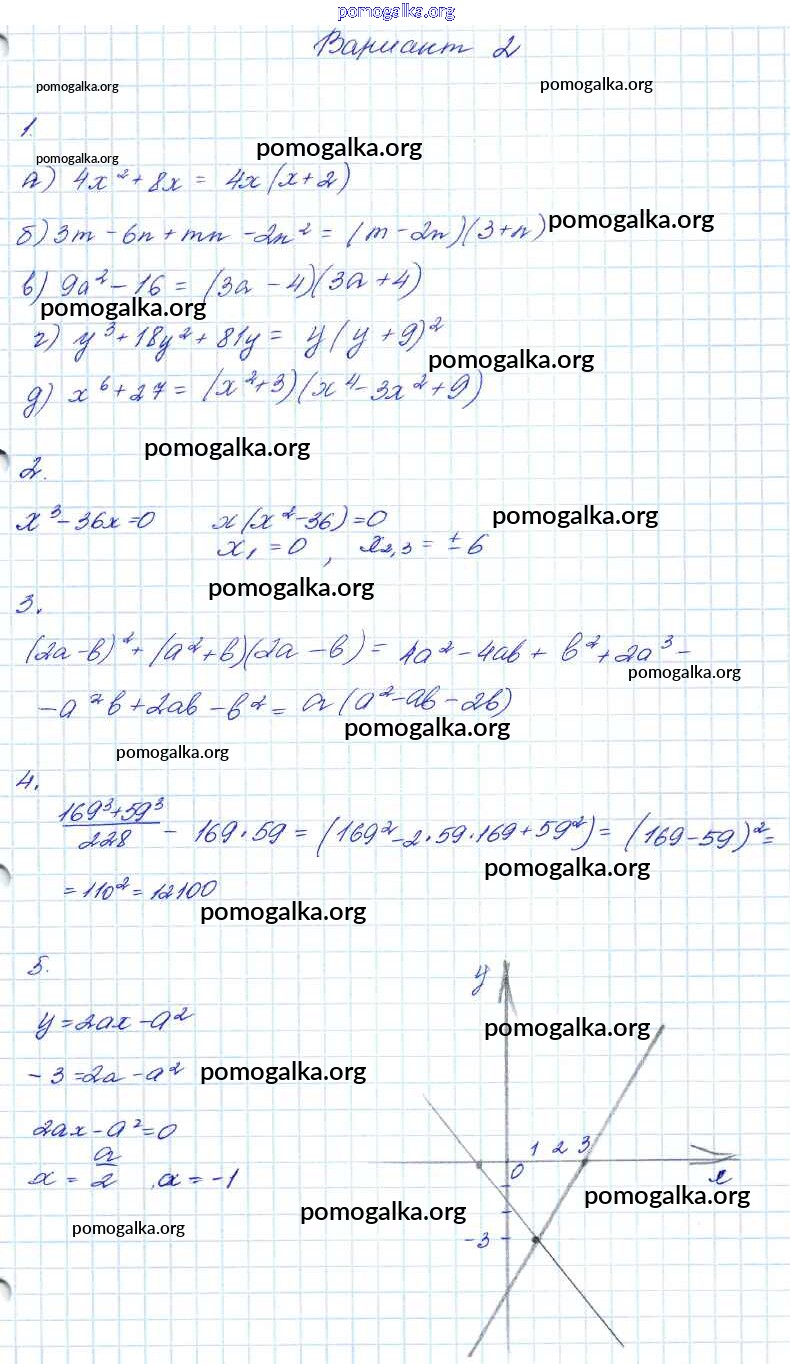 pomogalka.org
Вариант 2
pomogalka.org pomogalka.org
1.
pomogalka.org
pomogalka.org
а) 4x² + 8x = 4x(x+2)
б) 3m - 6n + mn - 2n² = (m - 2n)(3+n) pomogalka.org
в) 9a² - 16 = (3a - 4)(3a + 4)
pomogalka.org
г) y³ + 18y² + 81y = y(y + 9)²
pomogalka.org
д) x⁶ + 27 = (x² + 3)(x⁴ - 3x² + 9)
pomogalka.org
2.
x³ - 36x = 0 x(x² - 36) = 0 pomogalka.org
x₁ = 0, x₂,₃ = ± 6
pomogalka.org
3.
(2a - b)² + (a² + b)(2a - b) = 4a² - 4ab + b² + 2a³ -
pomogalka.org
- a²b + 2ab - b² = a(a² - ab - 2b)
pomogalka.org
pomogalka.org
4.
(169³ + 59³)/228 - 169·59 = (169² - 2·59·169 + 59²) = (169 - 59)² =
pomogalka.org
= 110² = 12100
pomogalka.org
5.
y
y = 2ax - a²
pomogalka.org
-3 = 2a - a² pomogalka.org
2ax - a² = 0
x = a/2, a = -1
1 2 3
0
x
pomogalka.org
pomogalka.org
pomogalka.org
-3